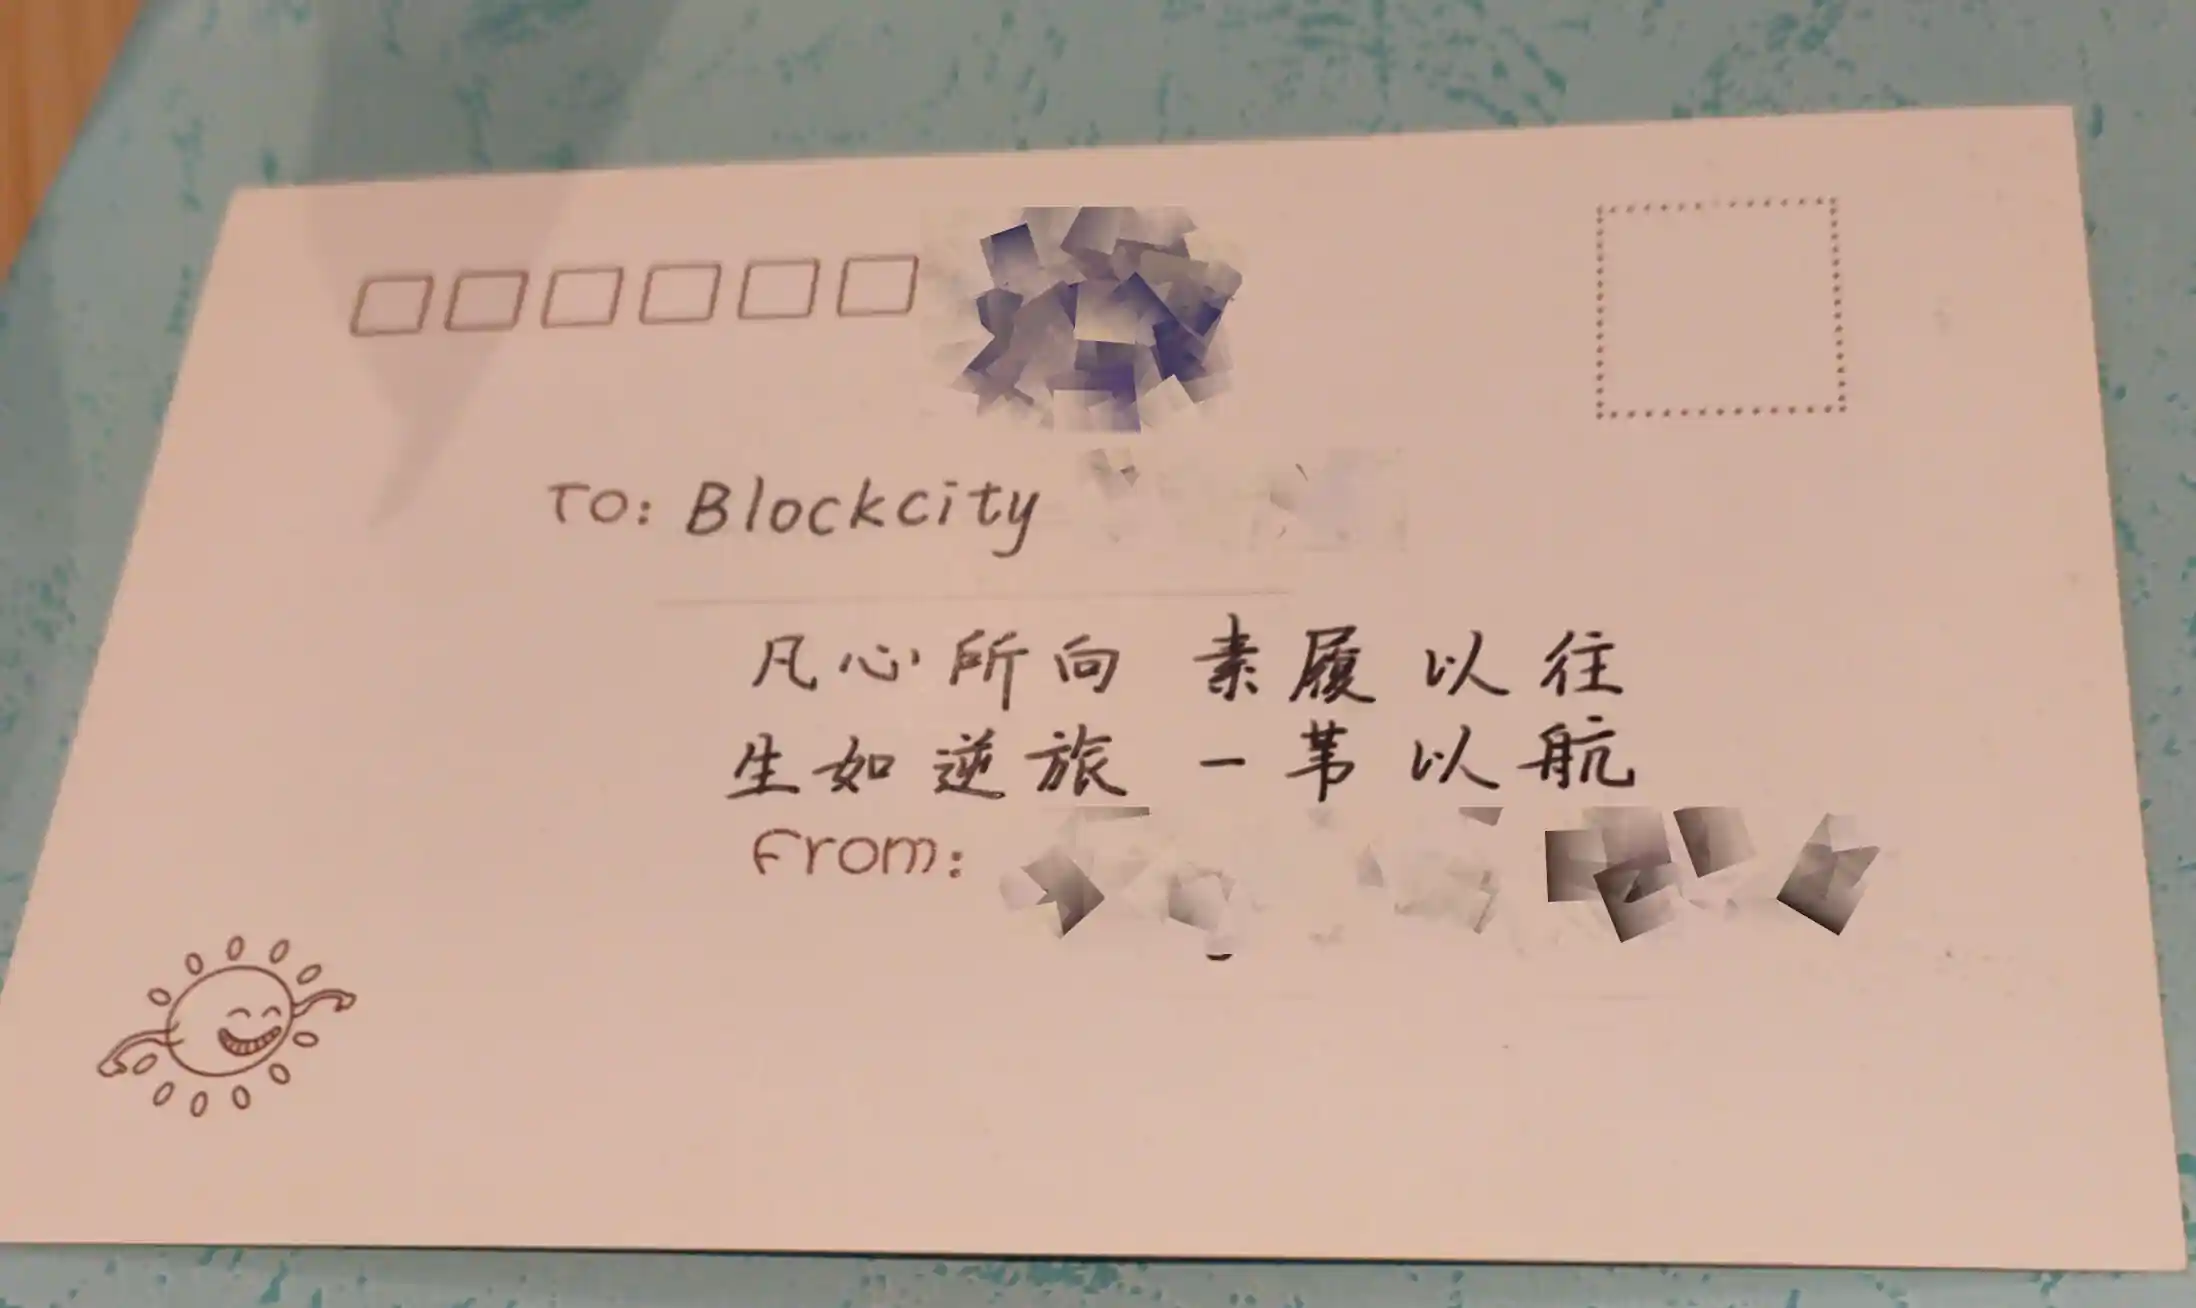 TO: Blockcity
凡心所向 素履以往
生如逆旅 一苇以航
From: